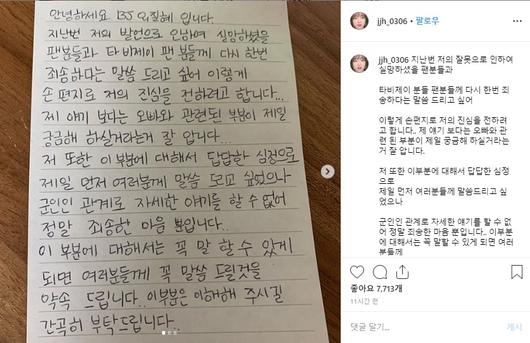 안녕하세요 BJ
입니다.
지난번 저의 발언으로 인하여 실망하셨을
팬분들과 타비제이 팬 분들께 다시 한번
죄송하다는 말씀 드리고 싶어 이렇게
손 편지로 저의 진심을 전하려고 합니다...
제 얘기 보다는 오빠와 관련된 부분이 제일
궁금해 하실거라는거 잘 압니다..
저 또한 이 부분에 대해서 답답한 심정으로
제일 먼저 여러분께 말씀 드리고 싶었으나
군인인 관계로 자세한 얘기를 할 수 없어
정말 죄송한 마음 뿐입니다..
이 부분에 대해서는 꼭 말 할 수 있게
되면 여러분들께 꼭 말씀 드릴것을
약속 드립니다..이부분은 이해해 주시길
간곡히 부탁드립니다..
jjh_0306 • 팔로우
jjh_0306 지난번 저의 잘못으로 인하여
실망하셨을 팬분들과
타비제이 분들 팬분들께 다시 한번 죄
송하다는 말씀 드리고 싶어
이렇게 손편지로 저의 진심을 전하려
고 합니다.. 제 얘기 보다는 오빠와 관
련 된 부분이 제일 궁금해 하실거라는
거 잘 압니다.
저 또한 이부분에 대해서 답답한 심정
으로
제일 먼저 여러분께 말씀드리고 싶
었으나
군인인 관계로 자세한 얘기를 할 수 없
어 정말 죄송한 마음 뿐입니다.. 이 부
분에 대해서는 꼭 말할 수 있게 되면 여
러분들께
좋아요 7,713개
11시간 전
댓글 달기...
게시